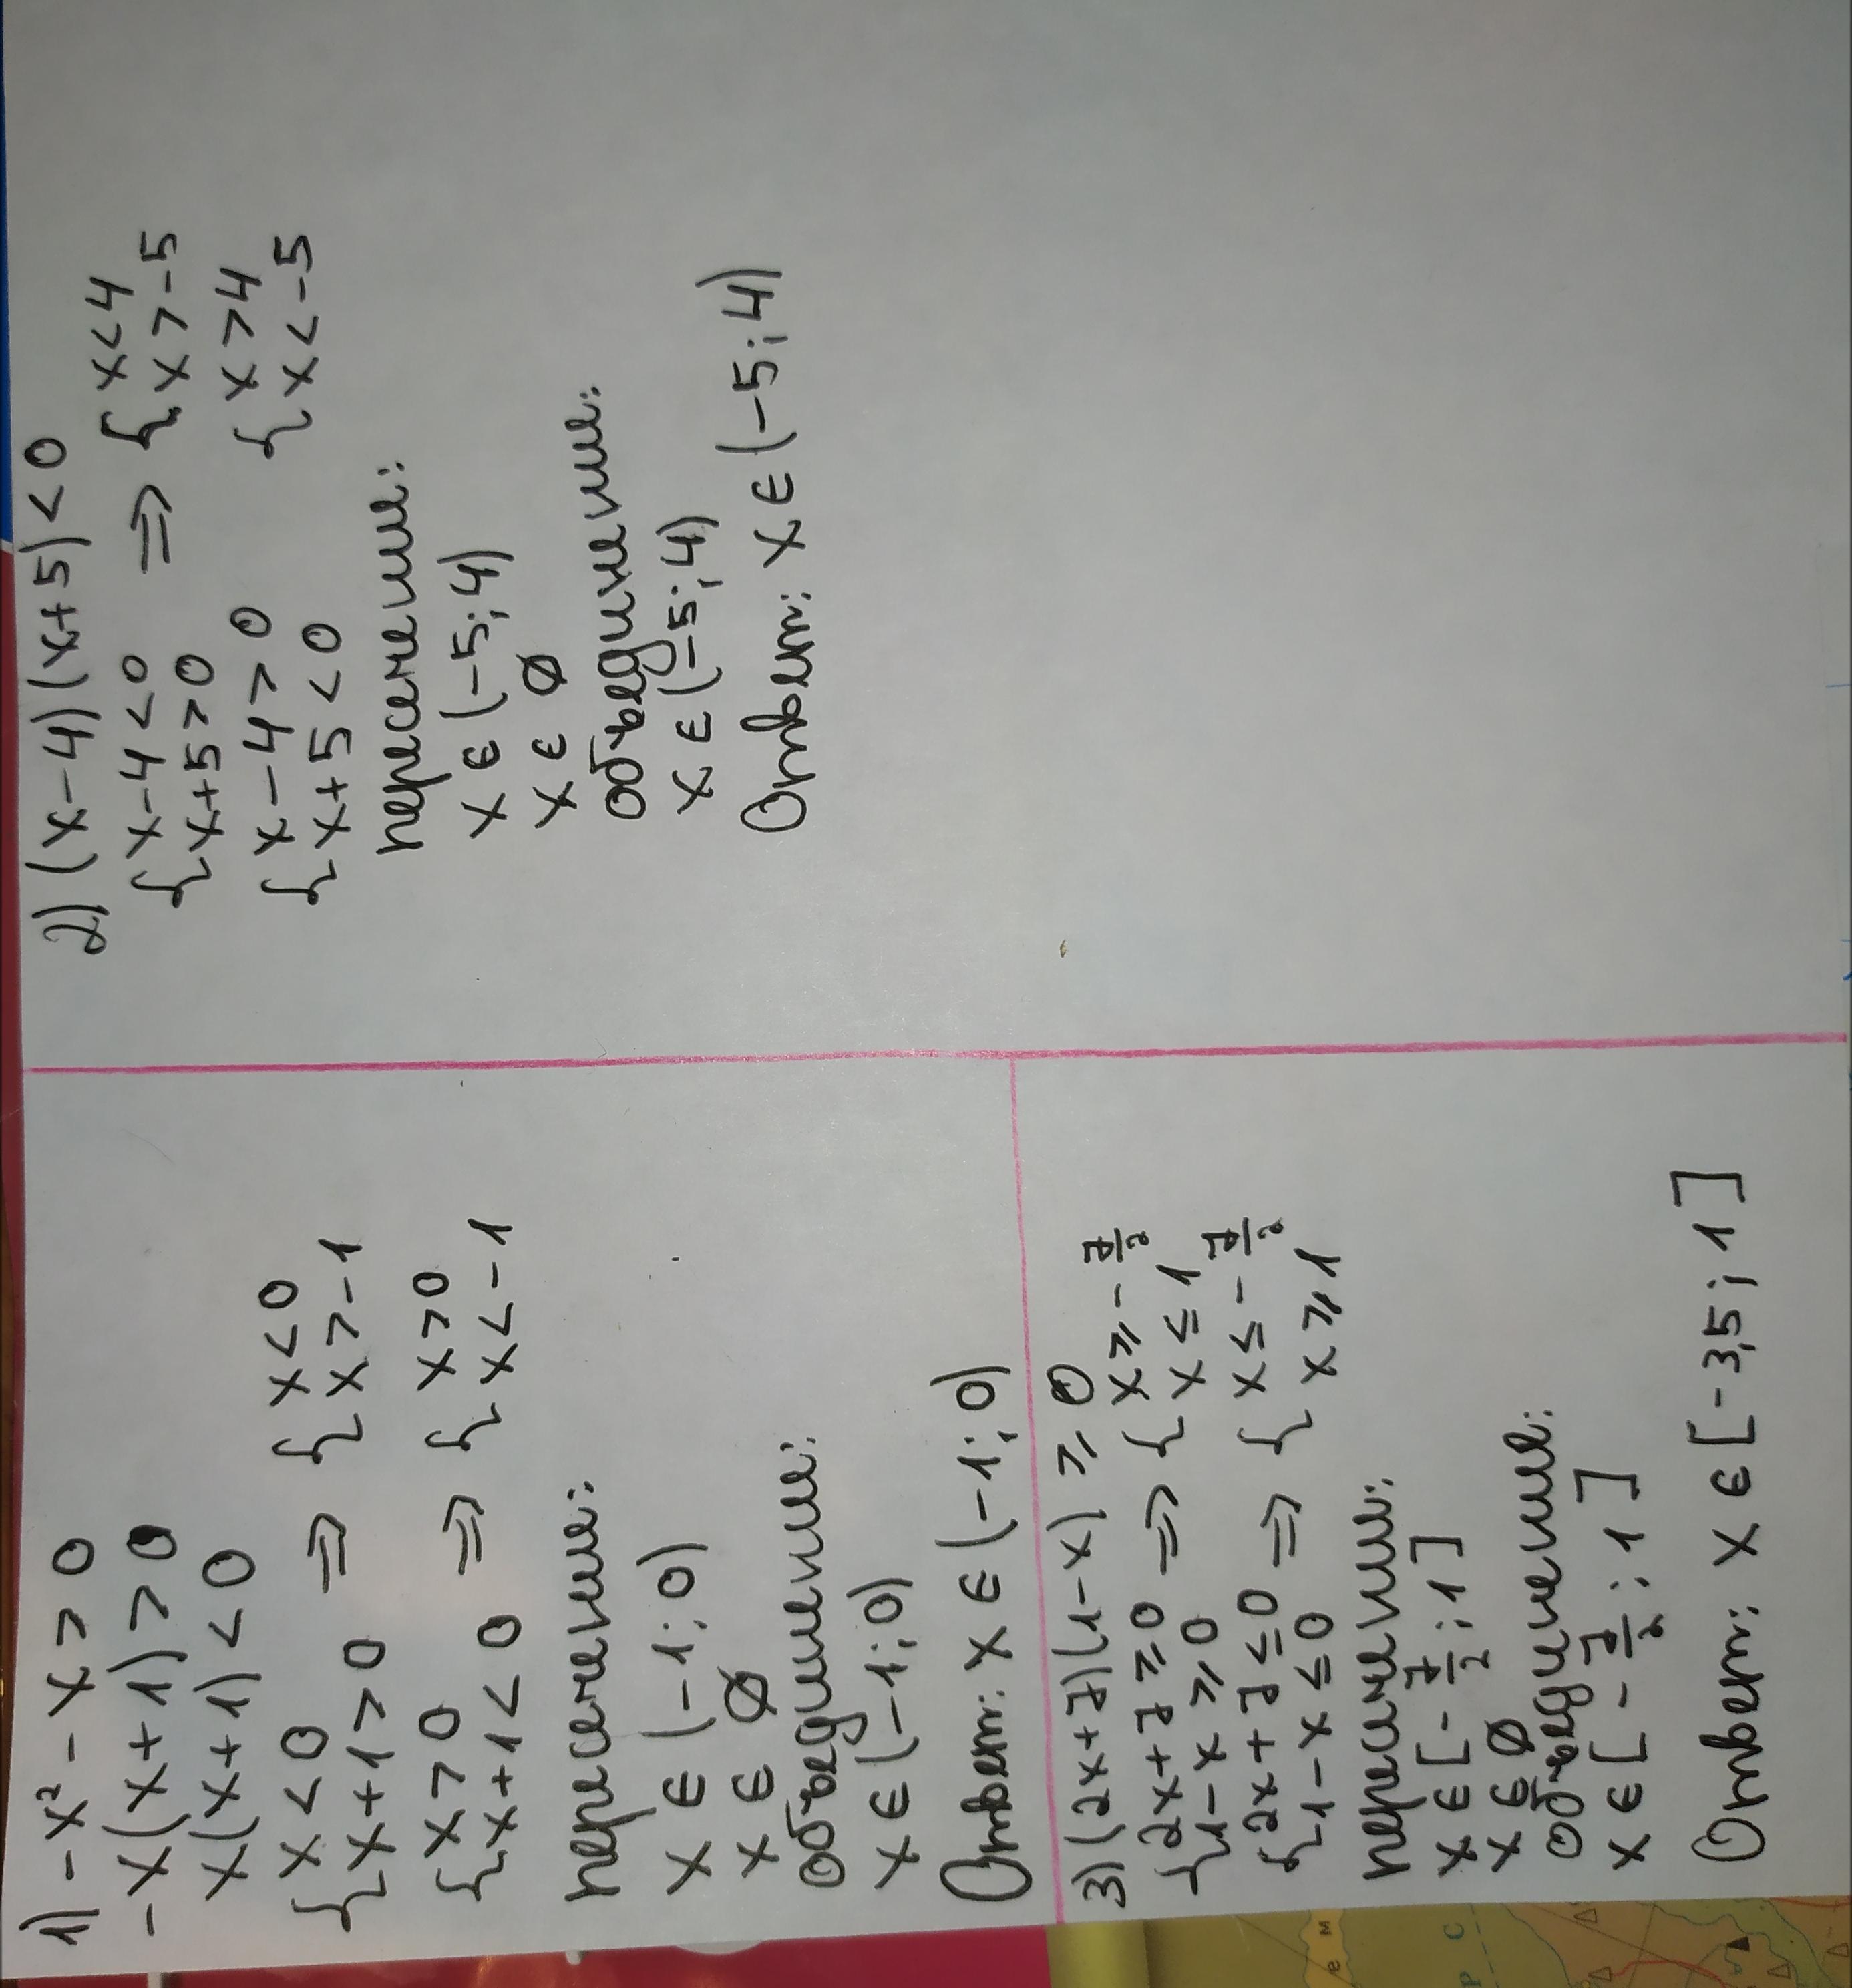 1) -x² - x > 0
-x(x+1) > 0
x(x+1) < 0
{ x < 0
{ x+1 > 0 ⇒ { x < 0
{ x > -1
{ x > 0
{ x+1 < 0 ⇒ { x > 0
{ x < -1
пересечение:
x ∈ (-1; 0)
x ∈ ∅
объединение:
x ∈ (-1; 0)
Ответ: x ∈ (-1; 0)
2) (x-4)(x+5) < 0
{ x-4 < 0
{ x+5 > 0 ⇒ { x < 4
{ x > -5
{ x-4 > 0
{ x+5 < 0
{ x > 4
{ x < -5
пересечение:
x ∈ (-5; 4)
x ∈ ∅
объединение:
x ∈ (-5; 4)
Ответ: x ∈ (-5; 4)
3) (2x+7)(1-x) ≥ 0
{ 2x+7 ≥ 0
{ 1-x ≥ 0 ⇒ { x ≥ -7/2
{ x ≤ 1
{ 2x+7 ≤ 0
{ 1-x ≤ 0 ⇒ { x ≤ -7/2
{ x ≥ 1
пересечение:
x ∈ [-7/2; 1]
x ∈ ∅
объединение:
x ∈ [-7/2; 1]
Ответ: x ∈ [-3,5; 1]
е м
Р С